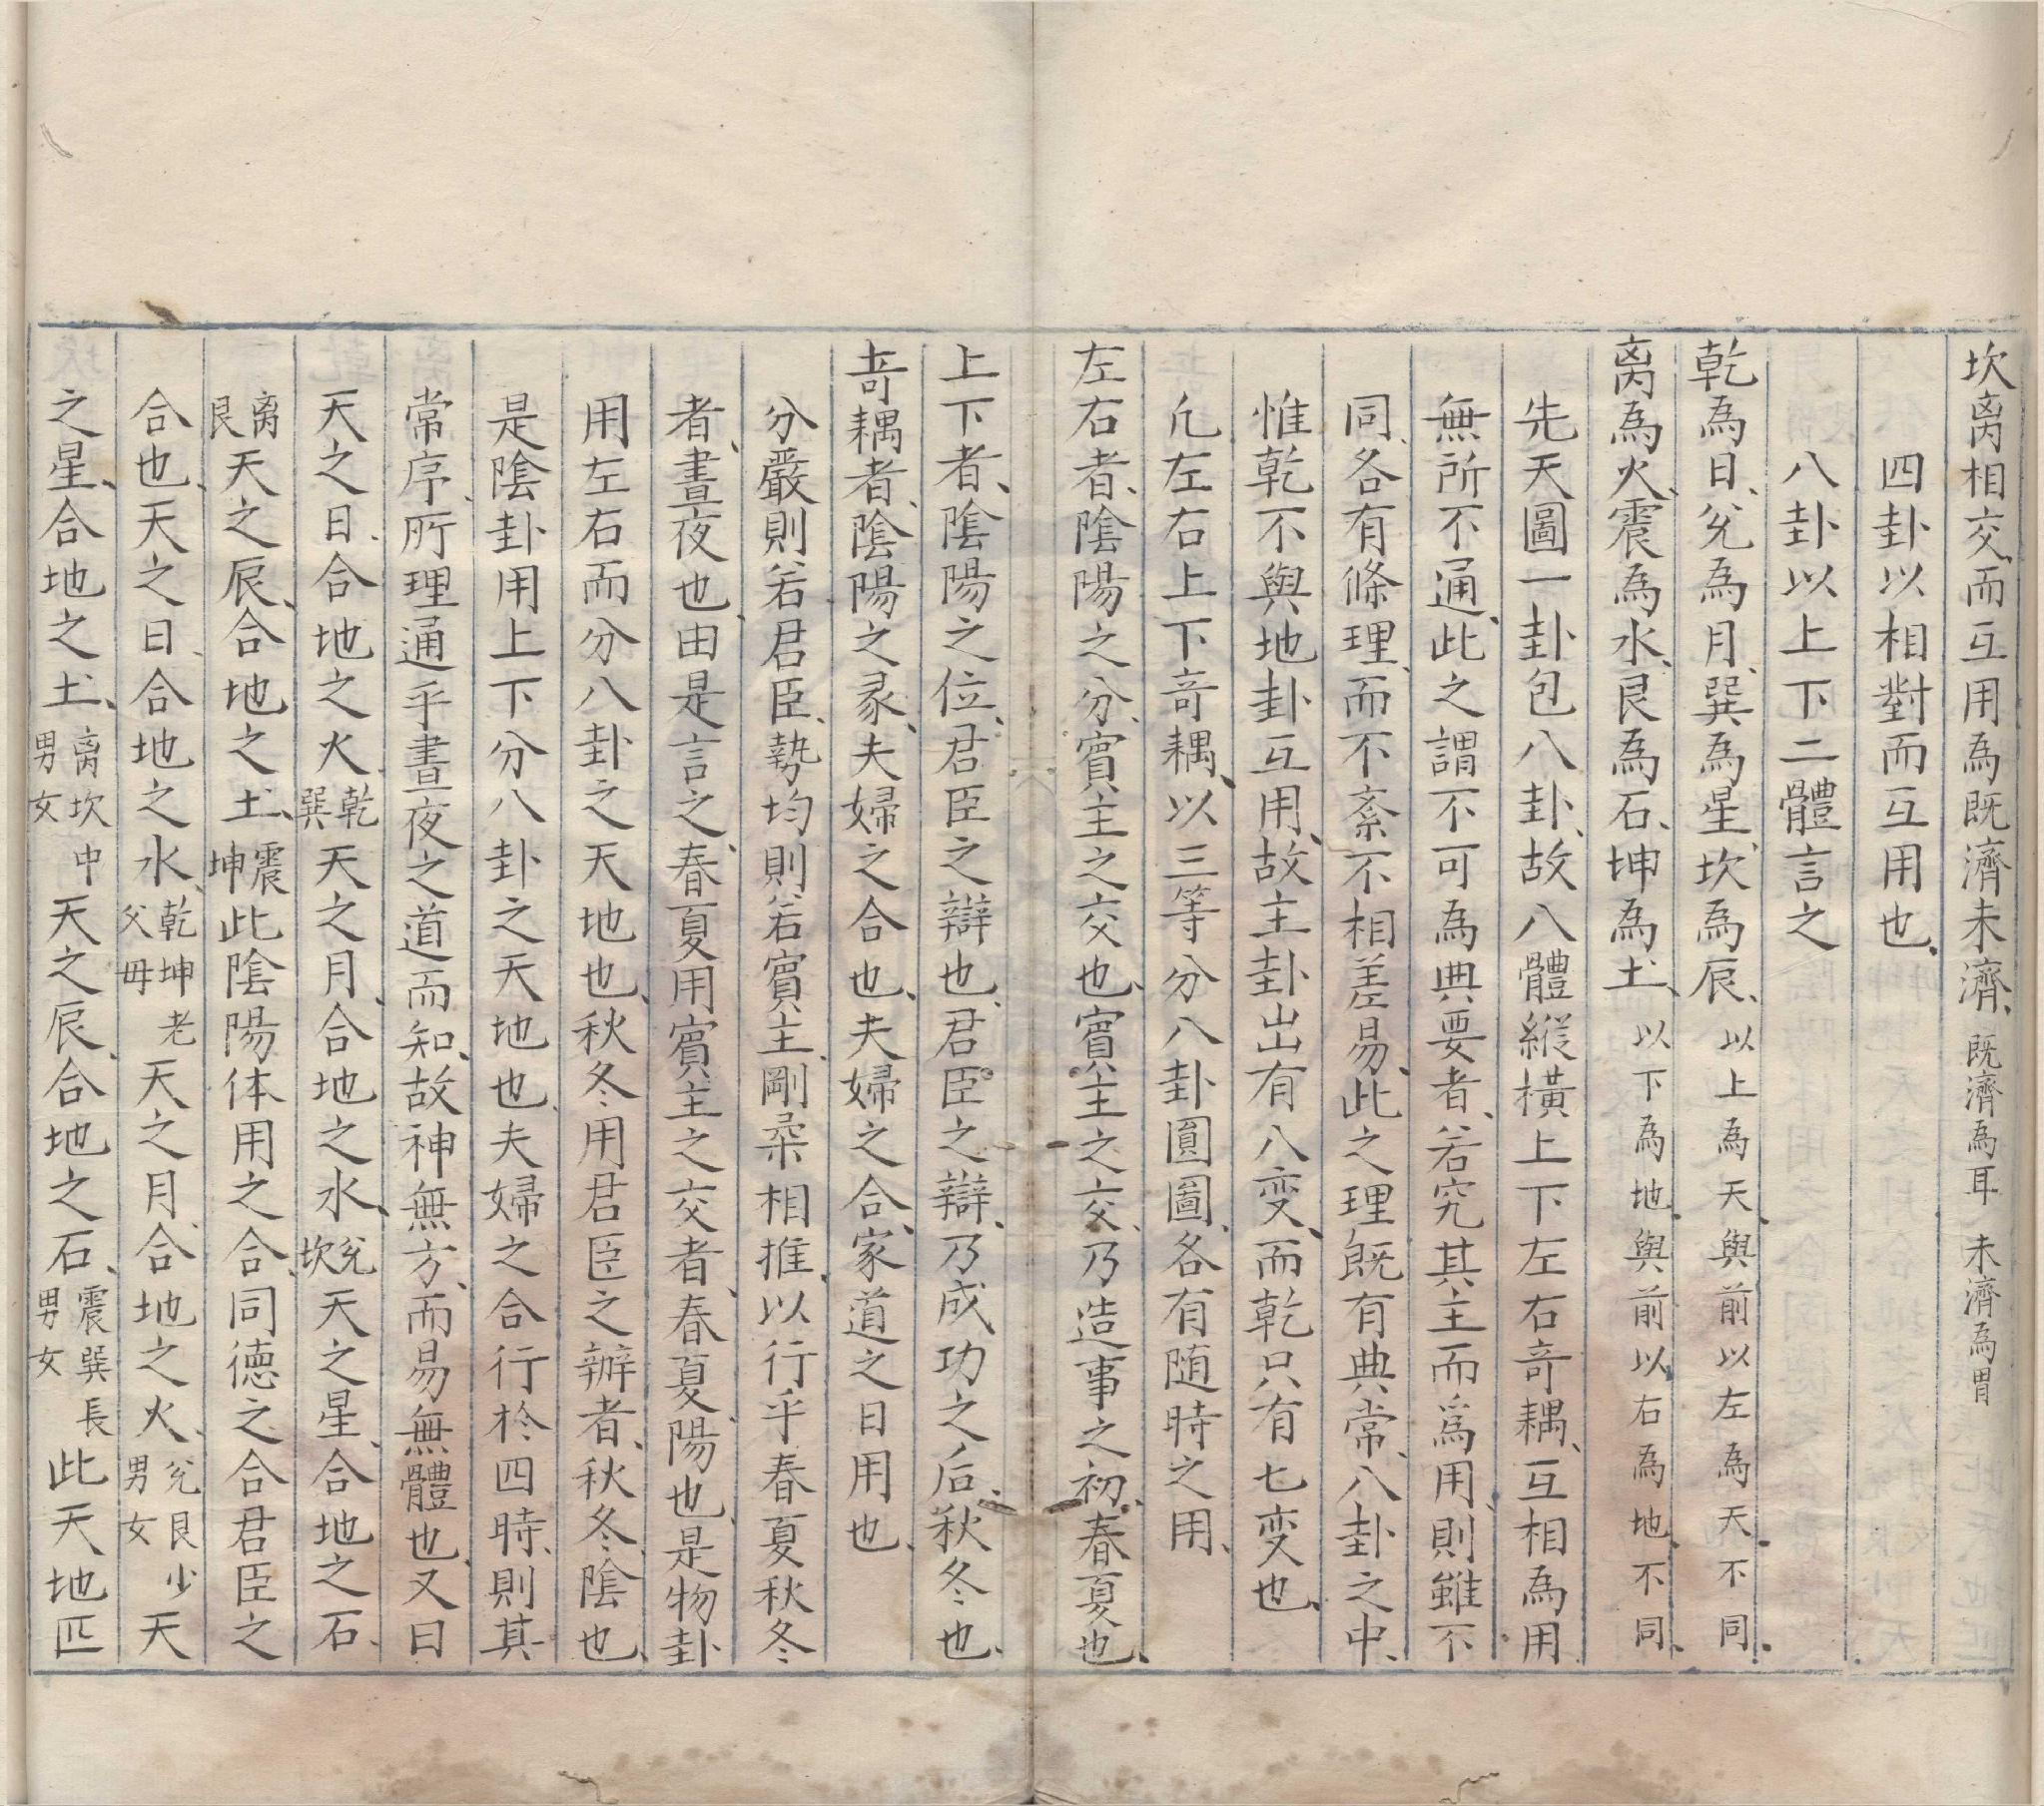 坎离相交、而互用為既濟未濟、既濟為耳 未濟為胃
四卦以相對而互用也、
八卦以上下二體言之
乾為日、兊為月、巽為星、坎為辰、以上為天、與前以左為天、不同、
离為火、震為水、艮為石、坤為土、以下為地、與前以右為地、不同、
先天圖一卦包八卦、故八體縱橫上下左右奇耦、互相為用
無所不通、此之謂不可為典要者、若究其主而爲用、則雖不
同、各有條理、而不紊不相差易、此之理既有典常、八卦之中、
惟乾不與地卦互用、故主卦出有八变、而乾只有七变也、
凢左右上下奇耦、以三等分八卦圓圖、各有随時之用、
左右者、陰陽之分、賓主之交也、賓主之交、乃造事之初、春夏也、
上下者、陰陽之位、君臣之辯也、君臣之辯、乃成功之后、秋冬也、
奇耦者、陰陽之彖、夫婦之合也、夫婦之合、家道之日用也、
分嚴則若君臣、勢均則若賓主、剛柔相推、以行乎春夏秋冬
者、晝夜也、由是言之、春夏用賓主之交者、春夏、陽也、是物卦
用左右而分八卦之天地也、秋冬用君臣之辦者、秋冬、陰也、
是陰卦用上下分八卦之天地也、夫婦之合行於四時、則其
常序、所理通乎晝夜之道而知、故神無方、而易無體也、又曰
天之日、合地之火、乾巽天之月、合地之水、兊坎天之星、合地之石、
离艮天之辰、合地之土、震坤此陰陽体用之合、同德之合君臣之
合也、天之日、合地之水、乾坤老父母天之月、合地之火、兊艮少男女天
之星、合地之土、离坎中男女天之辰、合地之石、震巽長男女此天地匹